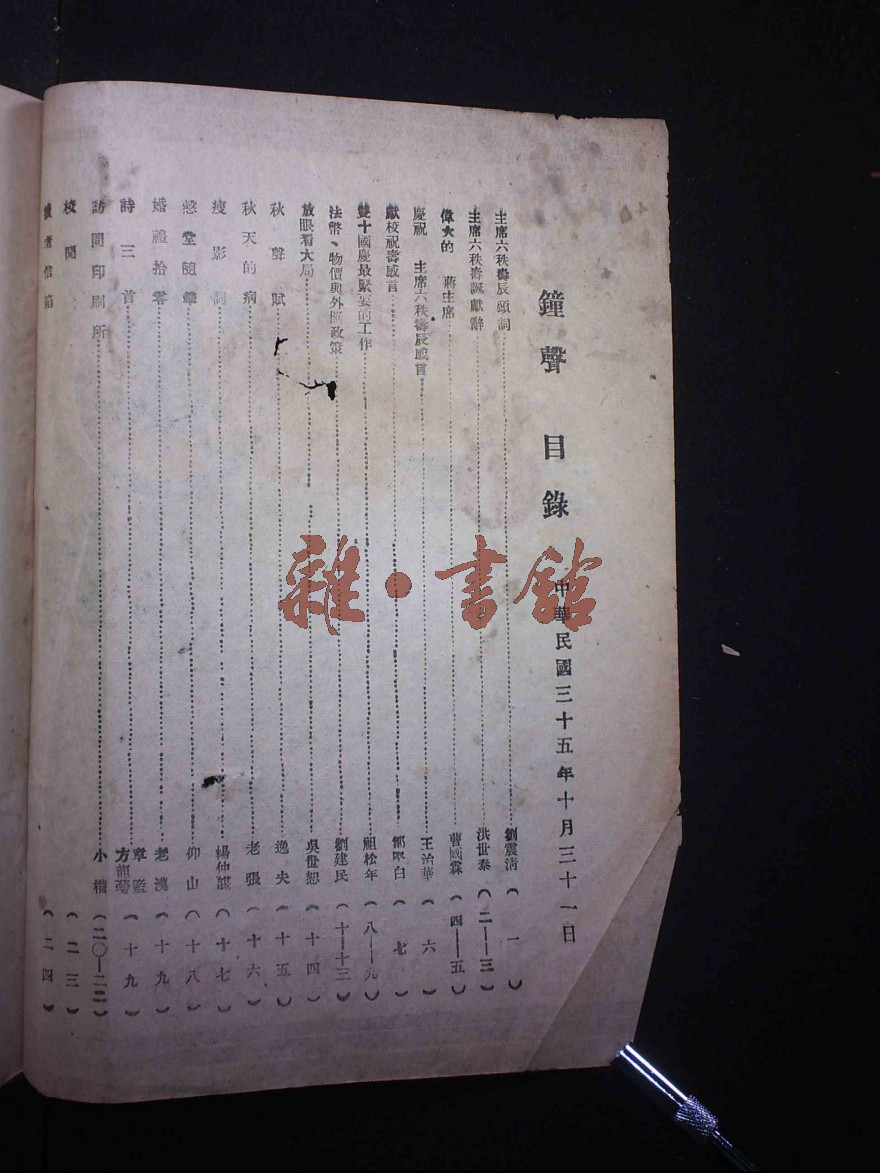 鐘聲 目錄 中華民國三十五年十月三十一日
主席六秩壽辰頌詞 劉震清 (一)
主席六秩壽誕獻辭 洪世泰 (二—三)
偉大的 蔣主席 曹國霖 (四—五)
慶祝 主席六秩壽辰感言 王治華 (六)
獻校祝壽感言 白 (七)
雙十國慶最緊要的工作 祖松年 (八—九)
法幣、物價與外匯政策 劉建民 (十—十三)
放眼看大局 吳世恕 (十四)
秋聲賦 逸夫 (十五)
秋天的病 老張 (十六)
瘦影詞 楊仲謀 (十七)
堂隨筆 仰山 (十八)
婚禮拾零 老漢 (十九)
詩三首 章 方龍 (十九)
訪問印刷所 小 (二〇—二二)
校聞 (二三)
讀者信箱 (二四)
雜·書館